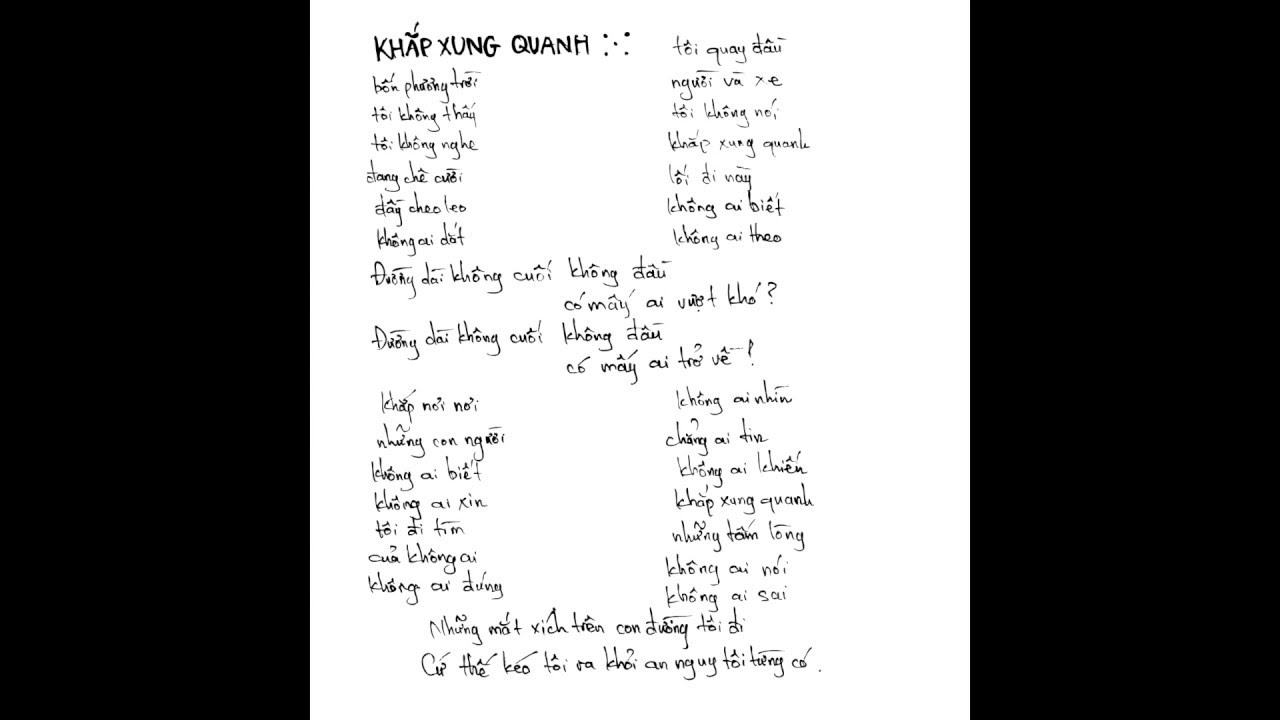 KHẮP XUNG QUANH
bốn phương trời
tôi không thấy
tôi không nghe
đang chê cười
đầy cheo leo
không ai dắt
tôi quay đầu
người và xe
tôi không nói
khắp xung quanh
lối đi này
không ai biết
không ai theo
Đường dài không cuối không đầu
có mấy ai vượt khó?
Đường dài không cuối không đầu
có mấy ai trở về!
khắp nơi nơi
những con người
không ai biết
không ai xin
tôi đi tìm
của không ai
không ai đúng
không ai nhìn
chẳng ai tin
không ai khiến
khắp xung quanh
những tấm lòng
không ai nói
không ai sai
Những mắt xích trên con đường tôi đi
Cứ thế kéo tôi ra khỏi an nguy tôi từng có.